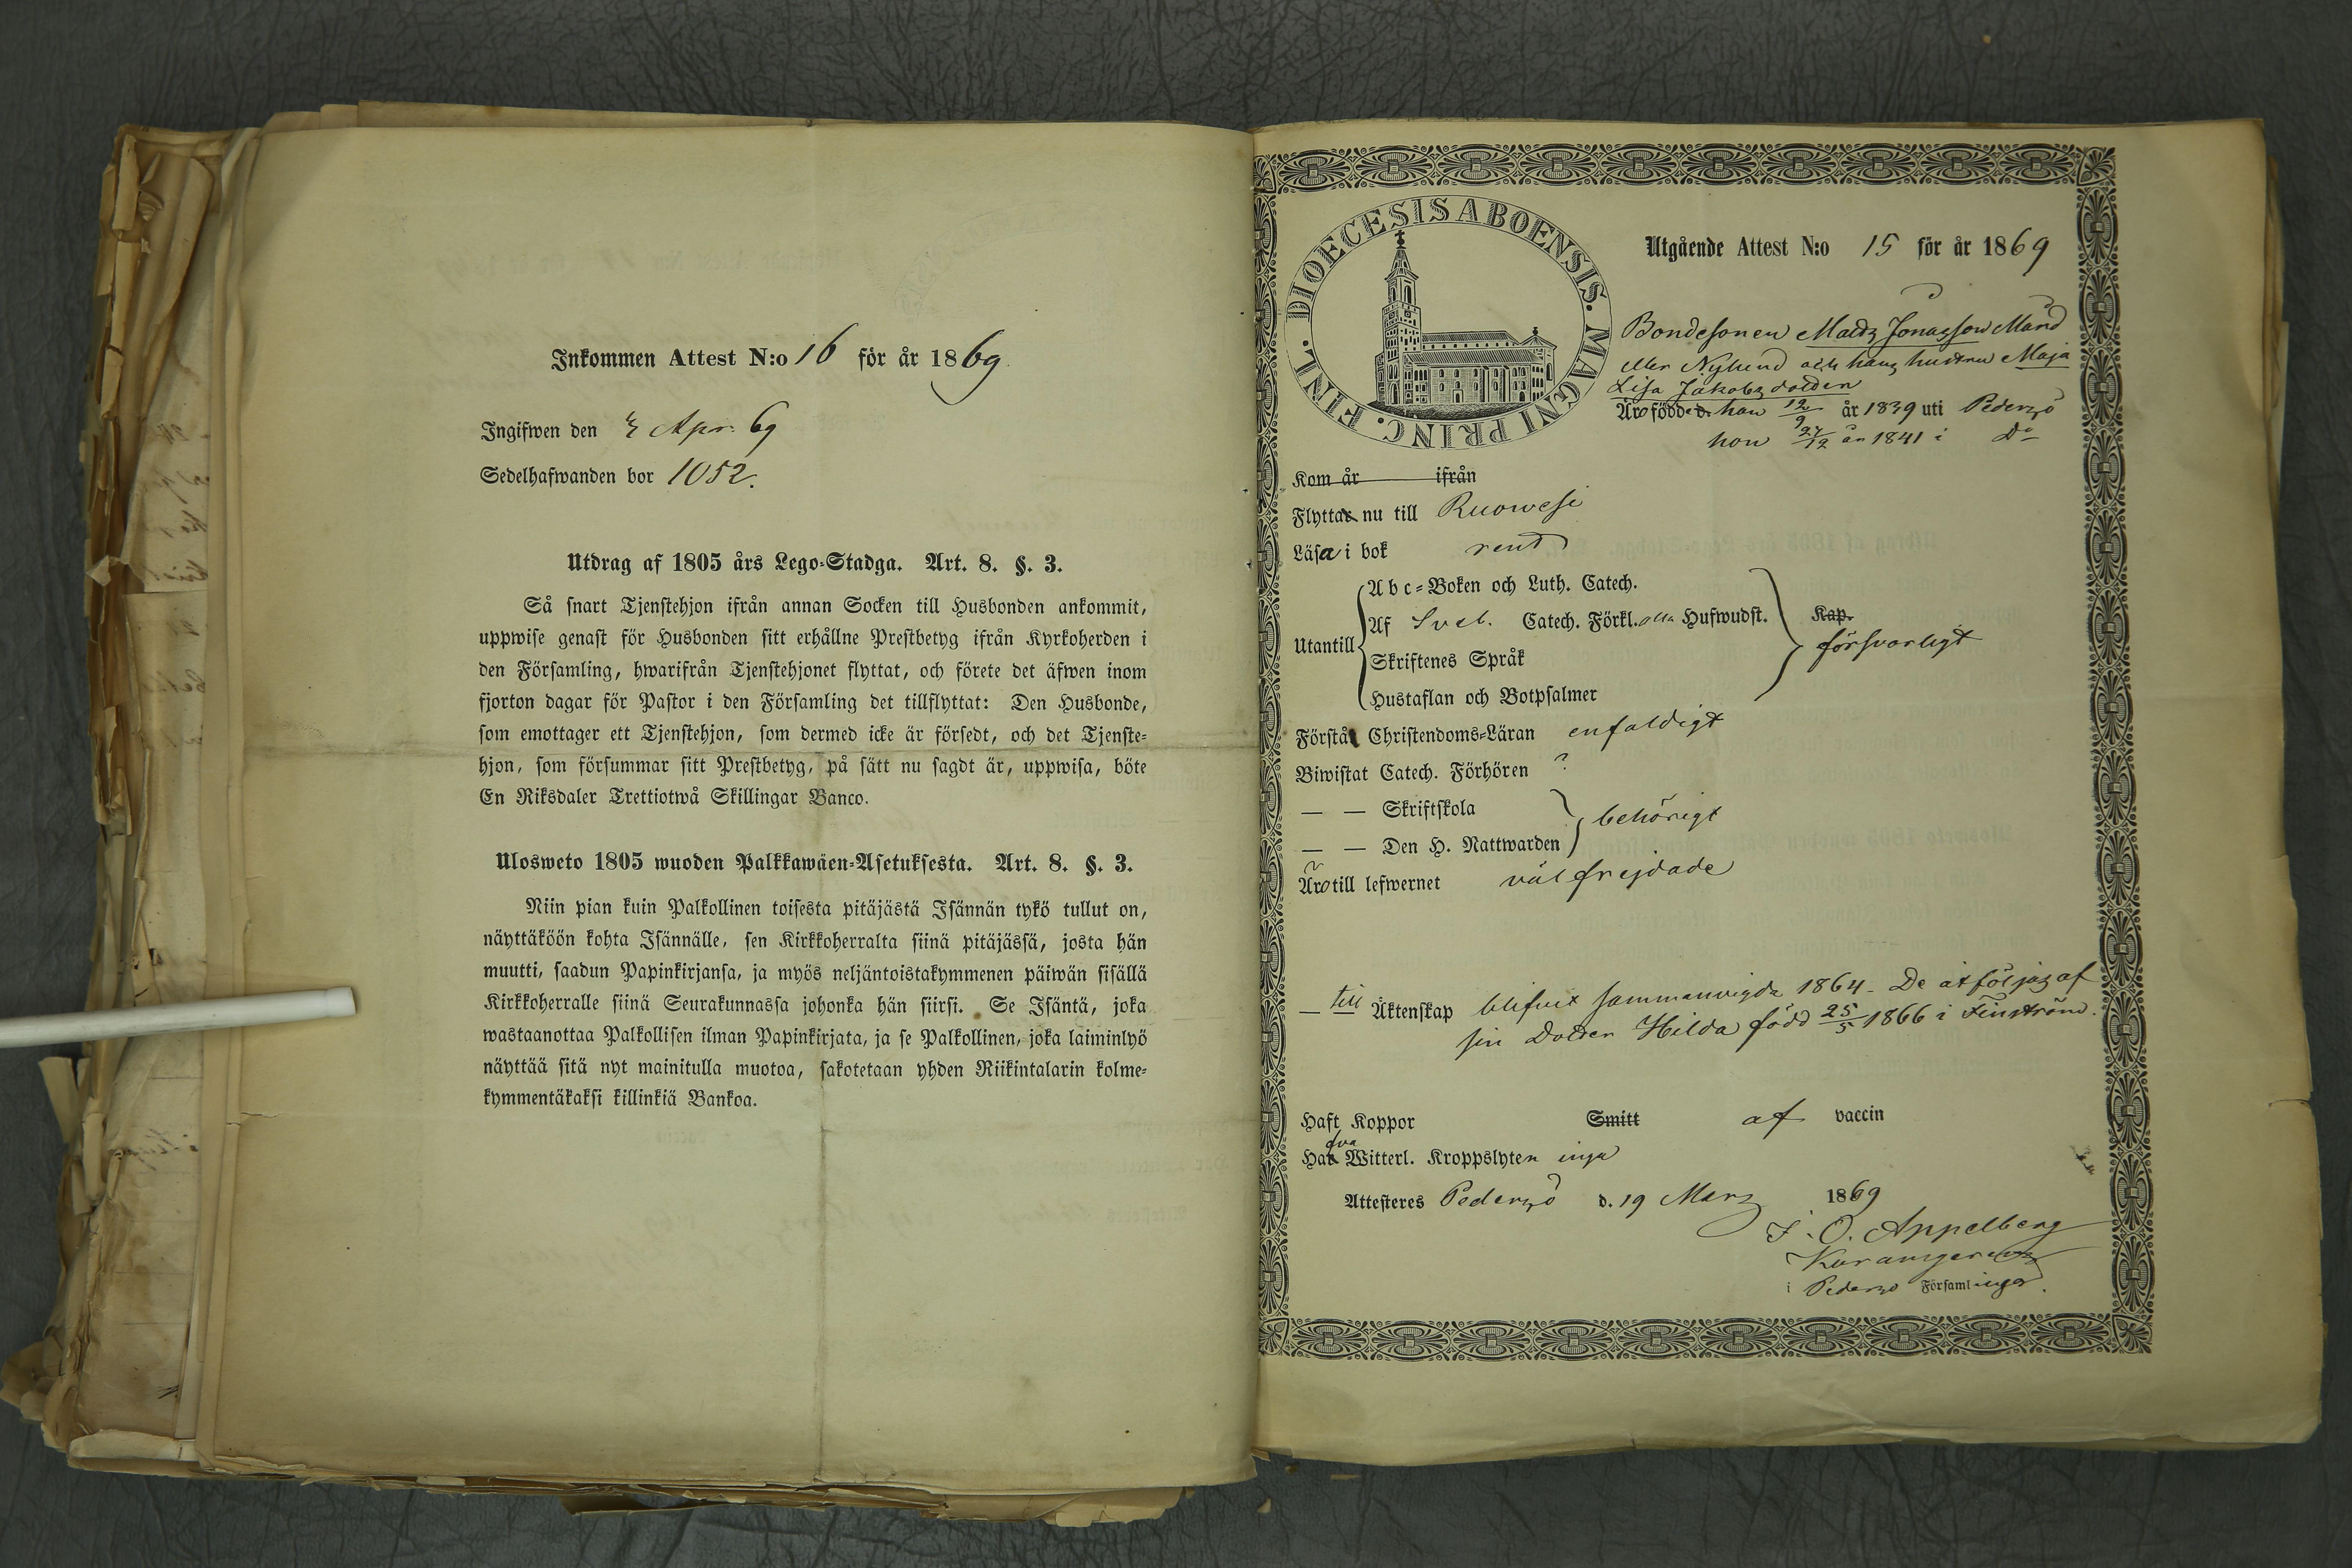 Inkommen Attest N:o 16 för år 1869.
Ingifwen den 3 Apr. 69
Sedelhafwanden bor 1052.
Utdrag af 1805 års Lego-Stadga. Art. 8. §. 3.
Så snart Tjenstehjon ifrån annan Socken till Husbonden ankommit,
uppwise genast för Husbonden sitt erhållne Prestbetyg ifrån Kyrkoherden i
den Församling, hwarifrån Tjenstehjonet flyttat, och förete det äfwen inom
fjorton dagar för Pastor i den Församling det tillflyttat: Den Husbonde,
som emottager ett Tjenstehjon, som dermed icke är försedt, och det Tjenste-
hjon, som försummar sitt Prestbetyg, på sätt nu sagdt är, uppwisa, böte
En Riksdaler Trettiotwå Skillingar Banco.
Ulosweto 1805 wuoden Palkkawäen-Asetuksesta. Art. 8. §. 3.
Niin pian kuin Palkollinen toisesta pitäjästä Isännän tykö tullut on,
näyttäköön kohta Isännälle, sen Kirkkoherralta siinä pitäjässä, josta hän
muutti, saadun Papinkirjansa, ja myös neljäntoistakymmenen päiwän sisällä
Kirkkoherralle siinä Seurakunnassa johonka hän siirsi. Se Isäntä, joka
wastaanottaa Palkollisen ilman Papinkirjata, ja se Palkollinen, joka laiminlyö
näyttää sitä nyt mainitulla muotoa, sakotetaan yhden Riikintalarin kolme-
kymmentäkaksi killinkiä Bankoa.
DIOECESIS ABOENSIS. MAGNI PRINC. FINL.
Utgående Attest N:o 15 för år 1869
Bondesonen Matts Jonasson Mand
eller Nylund och hans hustru Maja
Lisa Jakobsdotter
Äro födde d. han 12/9 år 1839 uti Pedersö
hon 27/12 år 1841 i Do
Kom år ifrån
Flyttar nu till Ruowesi
Läsa i bok rent
Abc-Boken och Luth. Catech.
Utantill Af Sveb. Catech. Förkl. Hufwudst. Kap.
försvarligt
Skriftenes Språk
Hustaflan och Botpsalmer
Förstå Christendoms-Läran enfaldigt
Biwistat Catech. Förhören ?
— — Skriftskola
behörigt
— — Den H. Nattwarden
Äro till lefwernet välfrejdade
— till Äktenskap blifvit sammanvigda 1864. De åtföljas af
sin Dotter Hilda född 25/5 1866 i Finström.
Haft Koppor Smitt af vaccin
Hafva Witterl. Kroppslyten inga
Attesteres Pedersö d. 19 Mars 1869
J. O. Appelberg
i Pedersö Församlingar.